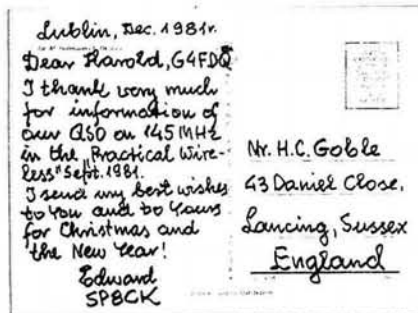 Lublin, Dec. 1981r.
Dear Harold, G4FDQ
I thank very much
for information of
our QSO on 145MHz
in the „Practical Wire-
less" Sept. 1981.
I send my best wishes
to You and to Yours
for Christmas and
the New Year!
Edward
SP8CK
Mr. H.C. Goble
43 Daniel Close,
Lancing, Sussex
England